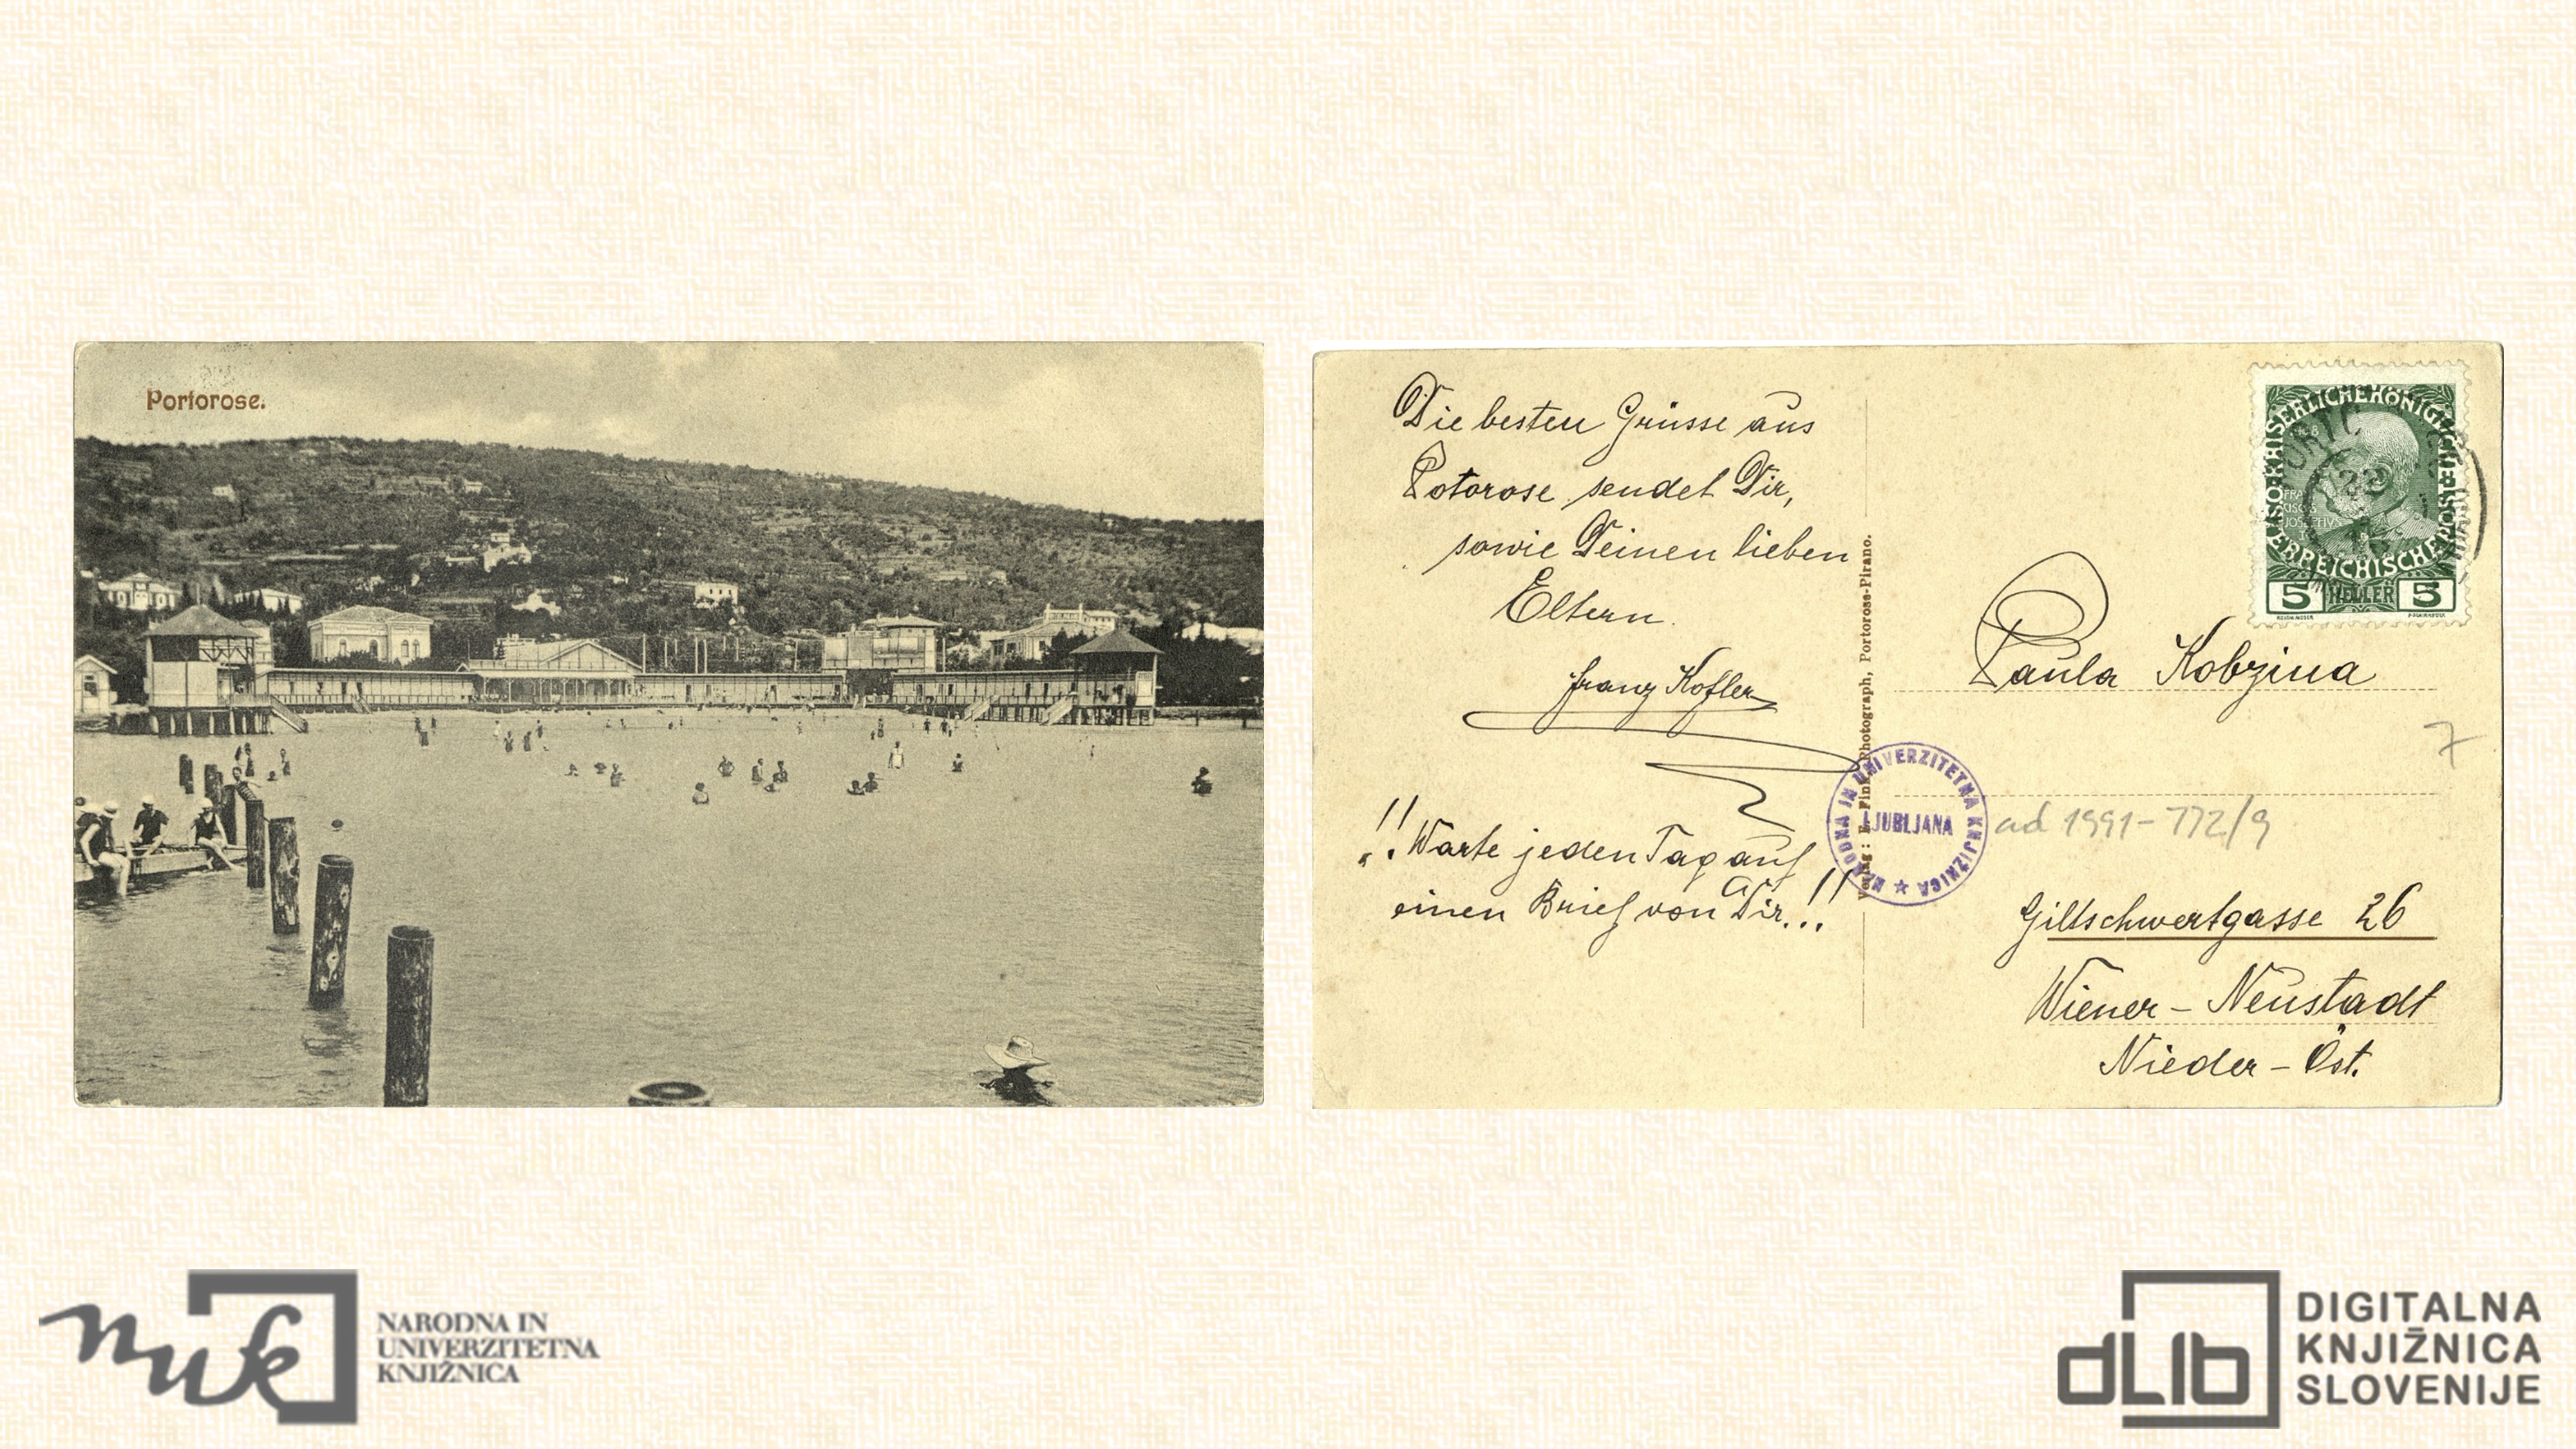 Portorose.
Die besten Grüsse aus
Potorose sendet Dir,
sowie Deinen lieben
Eltern.
Franz Kofler
!! Warte jeden Tag auf
einen Brief von Dir!!
Verlag: Fink, Photograph, Portoross-Pirano.
NARODNA IN UNIVERZITETNA KNJIŽNICA
LJUBLJANA
KAISERLICHE KÖNIGLICHE ÖSTERREICHISCHE
5 HELLER 5
Paula Kobzina
7
ad 1991-772/9
Giltschwertgasse 26
Wiener-Neustadt
Nieder-Öst.
nuk
NARODNA IN
UNIVERZITETNA
KNJIŽNICA
dLib
DIGITALNA
KNJIŽNICA
SLOVENIJE